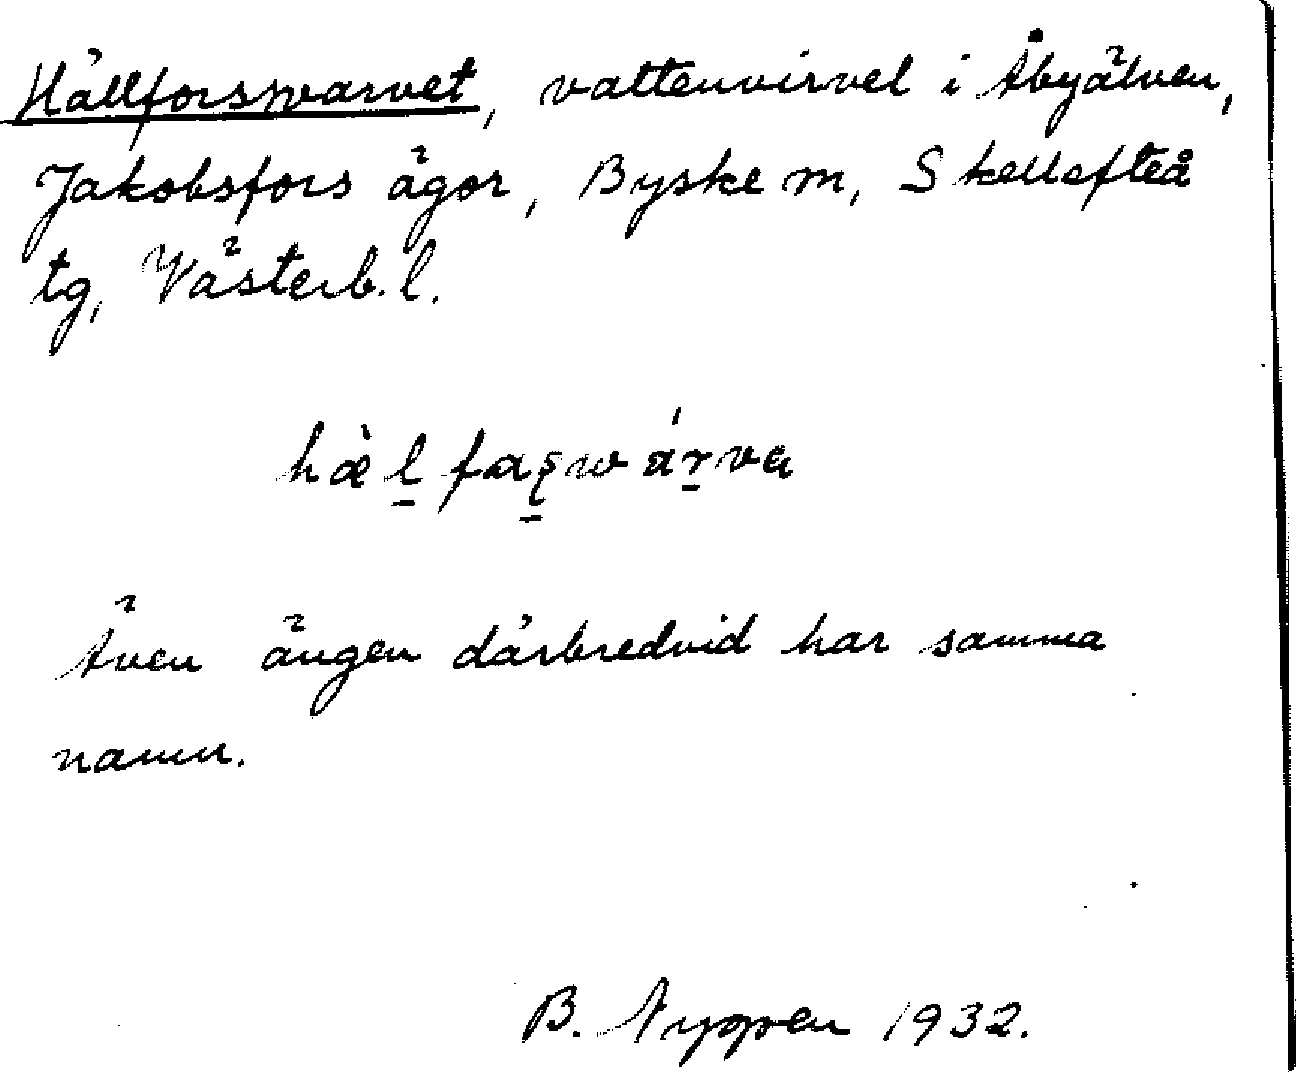 Hällforsvarvet, vattenvirvel i Åbyälven,
Jakobsfors ägor, Byske m, Skellefteå
tg, Västerb. l.
Även ängen därbredvid har samma
namn.
B. Nygren 1932.